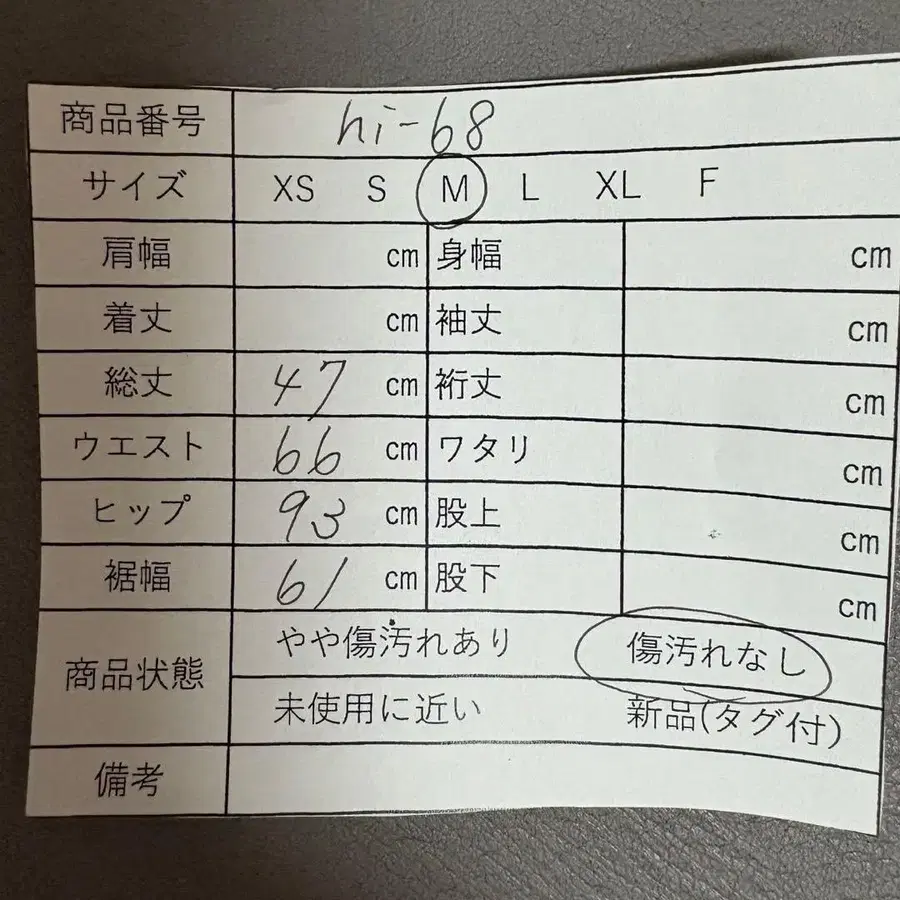 商品番号 hi-68
サイズ XS S M L XL F
肩幅 cm 身幅 cm
着丈 cm 袖丈 cm
総丈 47 cm 裄丈 cm
ウエスト 66 cm ワタリ cm
ヒップ 93 cm 股上 cm
裾幅 61 cm 股下 cm
商品状態 やや傷汚れあり 傷汚れなし
未使用に近い 新品(タグ付)
備考